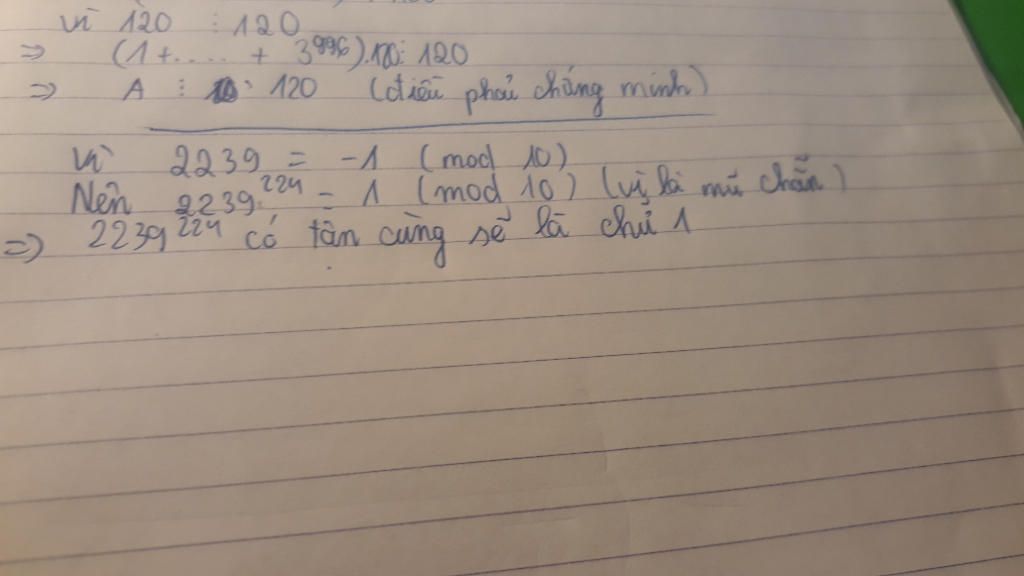 vì 120 ⋮ 120
=> (1 + ..... + 3^996).120 ⋮ 120
=> A ⋮ 120 (điều phải chứng minh)
Vì 2239 = -1 (mod 10)
Nên 2239^224 = 1 (mod 10) (vì là mũ chẵn)
=> 2239^224 có tận cùng sẽ là chữ 1